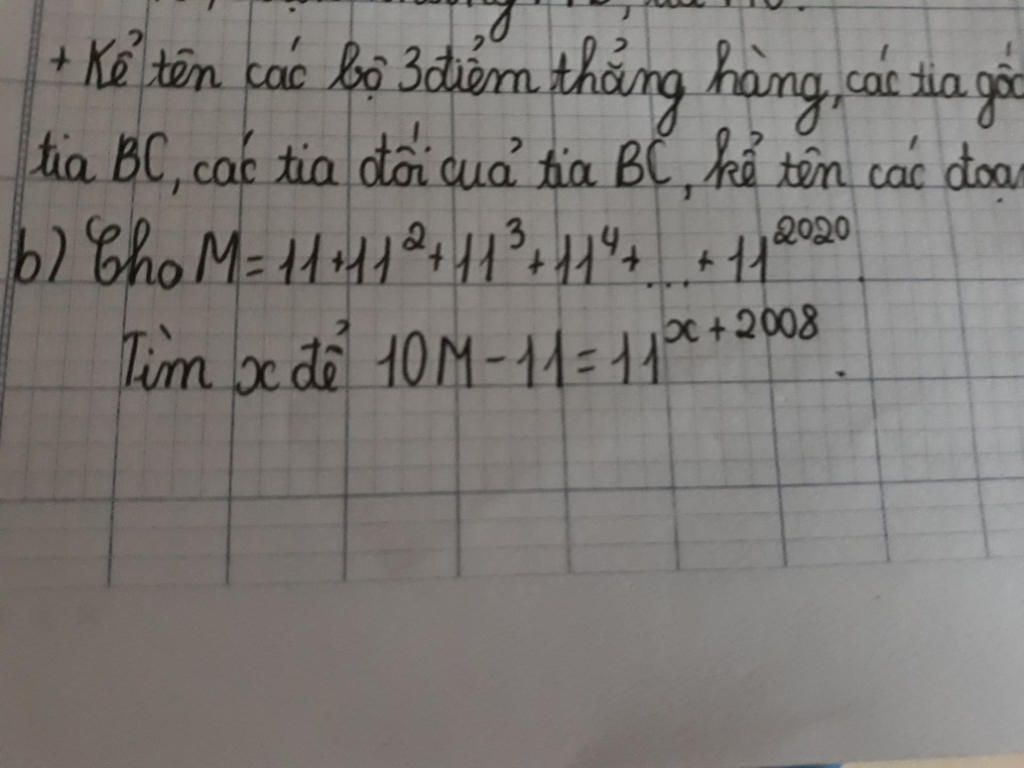 + Kể tên các bộ 3 điểm thẳng hàng, các tia gốc
tia BC, các tia đối quả tia BC, kể tên các đoạn
b) Cho M = 11 + 11² + 11³ + 11⁴ + ... + 11²⁰²⁰.
Tìm x để 10M - 11 = 11^{x + 2008}.